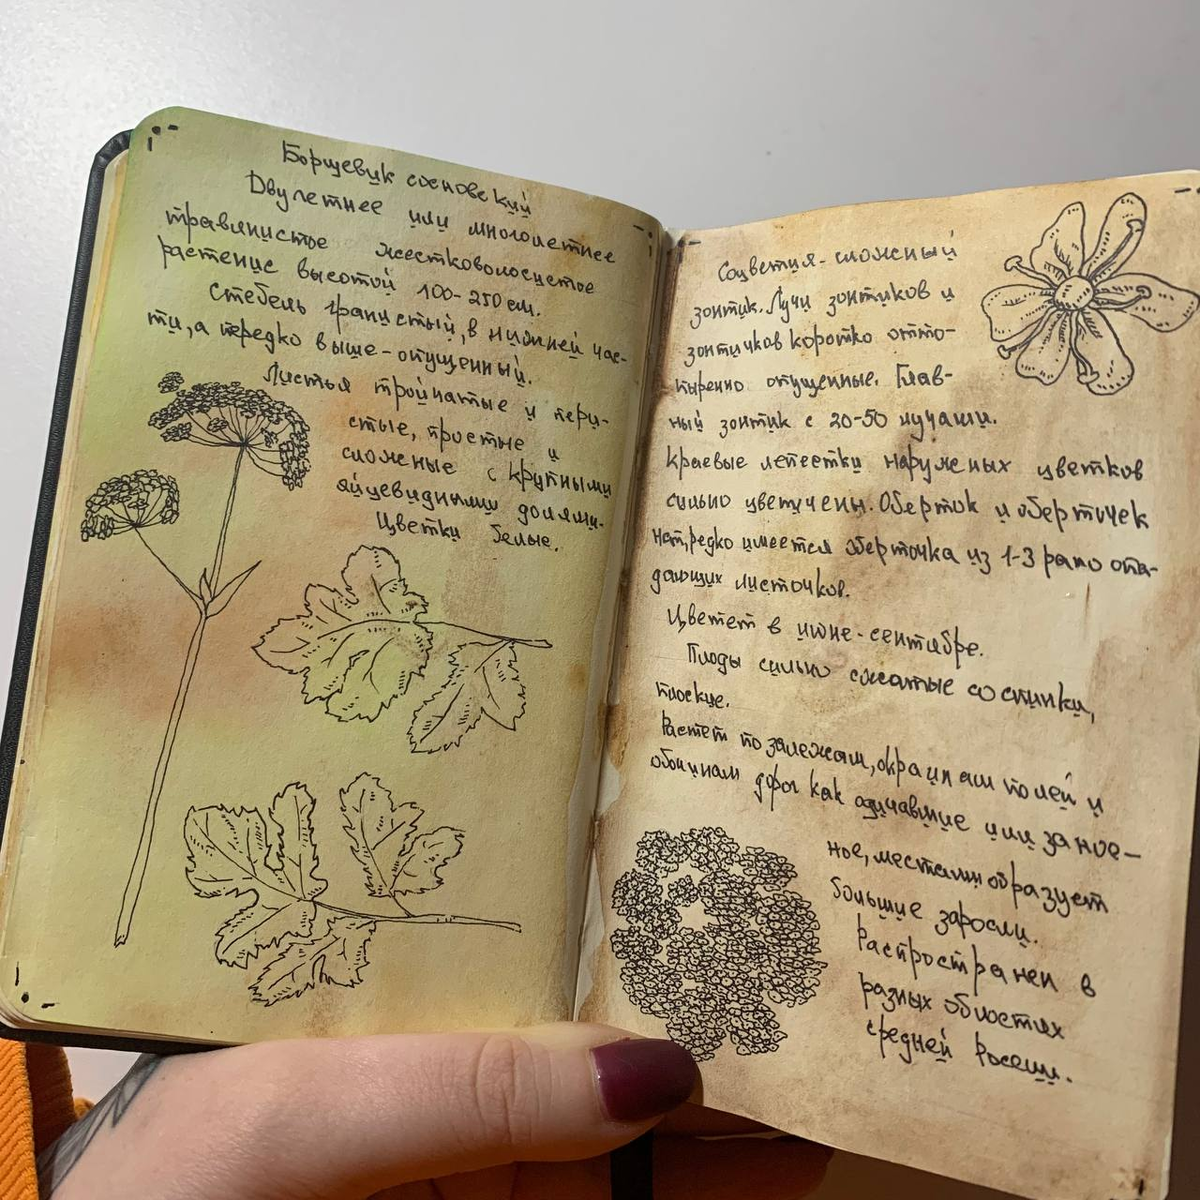 Борщевик сосновский
Двулетнее или многолетнее
травянистое жестковолосистое
растение высотой 100-250 см.
Стебель гранистый, в нижней час-
ти, а нередко выше-опущенный.
Листья тройчатые и пери-
стые, простые и
сложные с крупными
яйцевидными долями.
Цветки белые.
Соцветия-сложный
зонтик. Лучи зонтиков и
зонтичков коротко отто-
пыренно опущенные. Глав-
ный зонтик с 20-50 лучами.
Краевые лепестки наружных цветков
сильно увеличены. Оберток и оберточек
нет, редко имеется оберточка из 1-3 рано опа-
дающих листочков.
Цветет в июне-сентябре.
Плоды сильно сжатые со спинки,
плоские.
Растет по залежам, окраинам полей и
обочинам дорог как одичавшие или занос-
ное, местами образует
большие заросли.
Распространен в
разных областях
средней России.